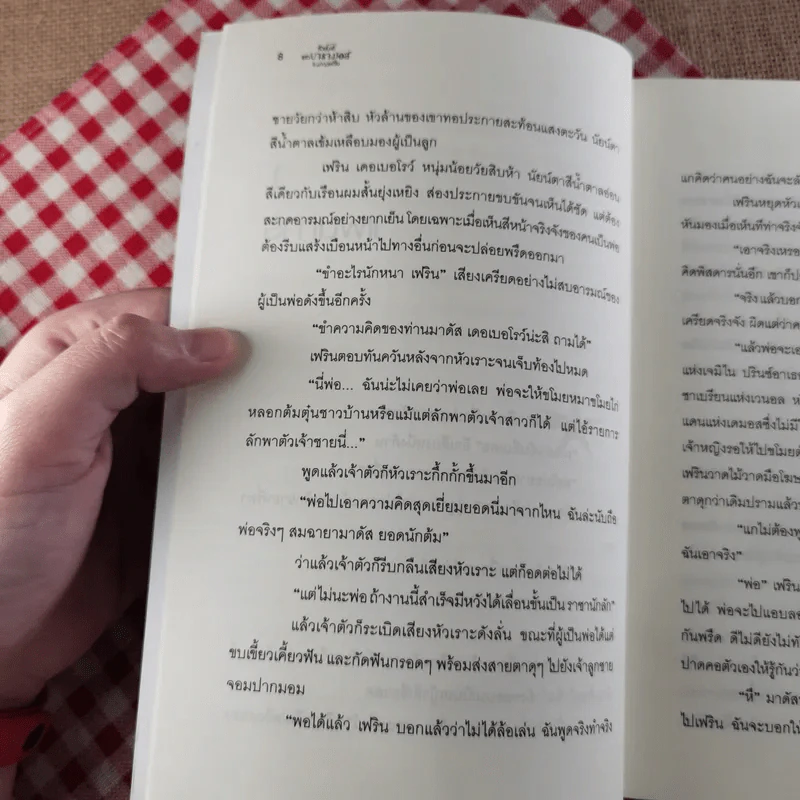 8
ชายวัยกว่าห้าสิบ หัวล้านของเขาทอประกายสะท้อนแสงตะวัน นัยน์ตา
สีน้ำตาลเข้มเหลือบมองผู้เป็นลูก
เฟริน เดอเบอโรว์ หนุ่มน้อยวัยสิบห้า นัยน์ตาสีน้ำตาลอ่อน
สีเดียวกับเรือนผมสั้นยุ่งเหยิง ส่องประกายขบขันจนเห็นได้ชัด แต่ต้อง
สะกดอารมณ์อย่างยากเย็น โดยเฉพาะเมื่อเห็นสีหน้าจริงจังของคนเป็นพ่อ
ต้องรีบแสร้งเบือนหน้าไปทางอื่นก่อนจะปล่อยพรืดออกมา
“ขำอะไรนักหนา เฟริน” เสียงเครียดอย่างไม่สบอารมณ์ของ
ผู้เป็นพ่อดังขึ้นอีกครั้ง
“ขำความคิดของท่านมาดัส เดอเบอโรว์น่ะสิ ถามได้”
เฟรินตอบทันควันหลังจากหัวเราะจนเจ็บท้องไปหมด
“นี่พ่อ... ฉันน่ะไม่เคยว่าพ่อเลย พ่อจะให้ขโมยหมาขโมยไก่
หลอกต้มตุ๋นชาวบ้านหรือแม้แต่ลักพาตัวเจ้าสาวก็ได้ แต่ไอ้รายการ
ลักพาตัวเจ้าชายนี่...”
พูดแล้วเจ้าตัวก็หัวเราะกึ้กกั้กขึ้นมาอีก
“พ่อไปเอาความคิดสุดเยี่ยมยอดนี่มาจากไหน ฉันล่ะนับถือ
พ่อจริงๆ สมฉายามาดัส ยอดนักต้ม”
ว่าแล้วเจ้าตัวก็รีบกลืนเสียงหัวเราะ แต่ก็อดต่อไม่ได้
“แต่ไม่นะพ่อ ถ้างานนี้สำเร็จมีหวังได้เลื่อนขั้นเป็น ราชานักลัก”
แล้วเจ้าตัวก็ระเบิดเสียงหัวเราะดังลั่น ขณะที่ผู้เป็นพ่อได้แต่
ขบเขี้ยวเคี้ยวฟัน และกัดฟันกรอดๆ พร้อมส่งสายตาดุๆ ไปยังเจ้าลูกชาย
จอมปากมอม
“พอได้แล้ว เฟริน บอกแล้วว่าไม่ได้ล้อเล่น ฉันพูดจริงทำจริง
แกคิดว่าคนอย่างฉันจะล้
เฟรินหยุดหัวเ
หันมองเมื่อเห็นทีท่าจริงจั
“เอาจริงเหรอ
คิดพิสดารนั่นอีก เขาก็ป
“จริง แล้วบอก
เครียดจริงจัง ผิดแต่ว่าค
“แล้วพ่อจะเอ
แห่งเจมิไน ปรินซ์อาเธ
ซาเบรียนแห่งเวนอล ห
แดนแห่งเดมอสซึ่งไม่มี
เจ้าหญิงรอให้ไปขโมยตั
เฟรินวาดไม้วาดมือโฆษ
ตาดุกว่าเดิมปรามแล้ว
“แกไม่ต้องพู
ฉันเอาจริง”
“พ่อ” เฟริน
ไปได้ พ่อจะไปแอบลอ
กันพรืด ดีไม่ดียังไม่ทั
ปาดคอตัวเองให้รู้กันว่
“หึ” มาดัส
ไปเฟริน ฉันจะบอกให้